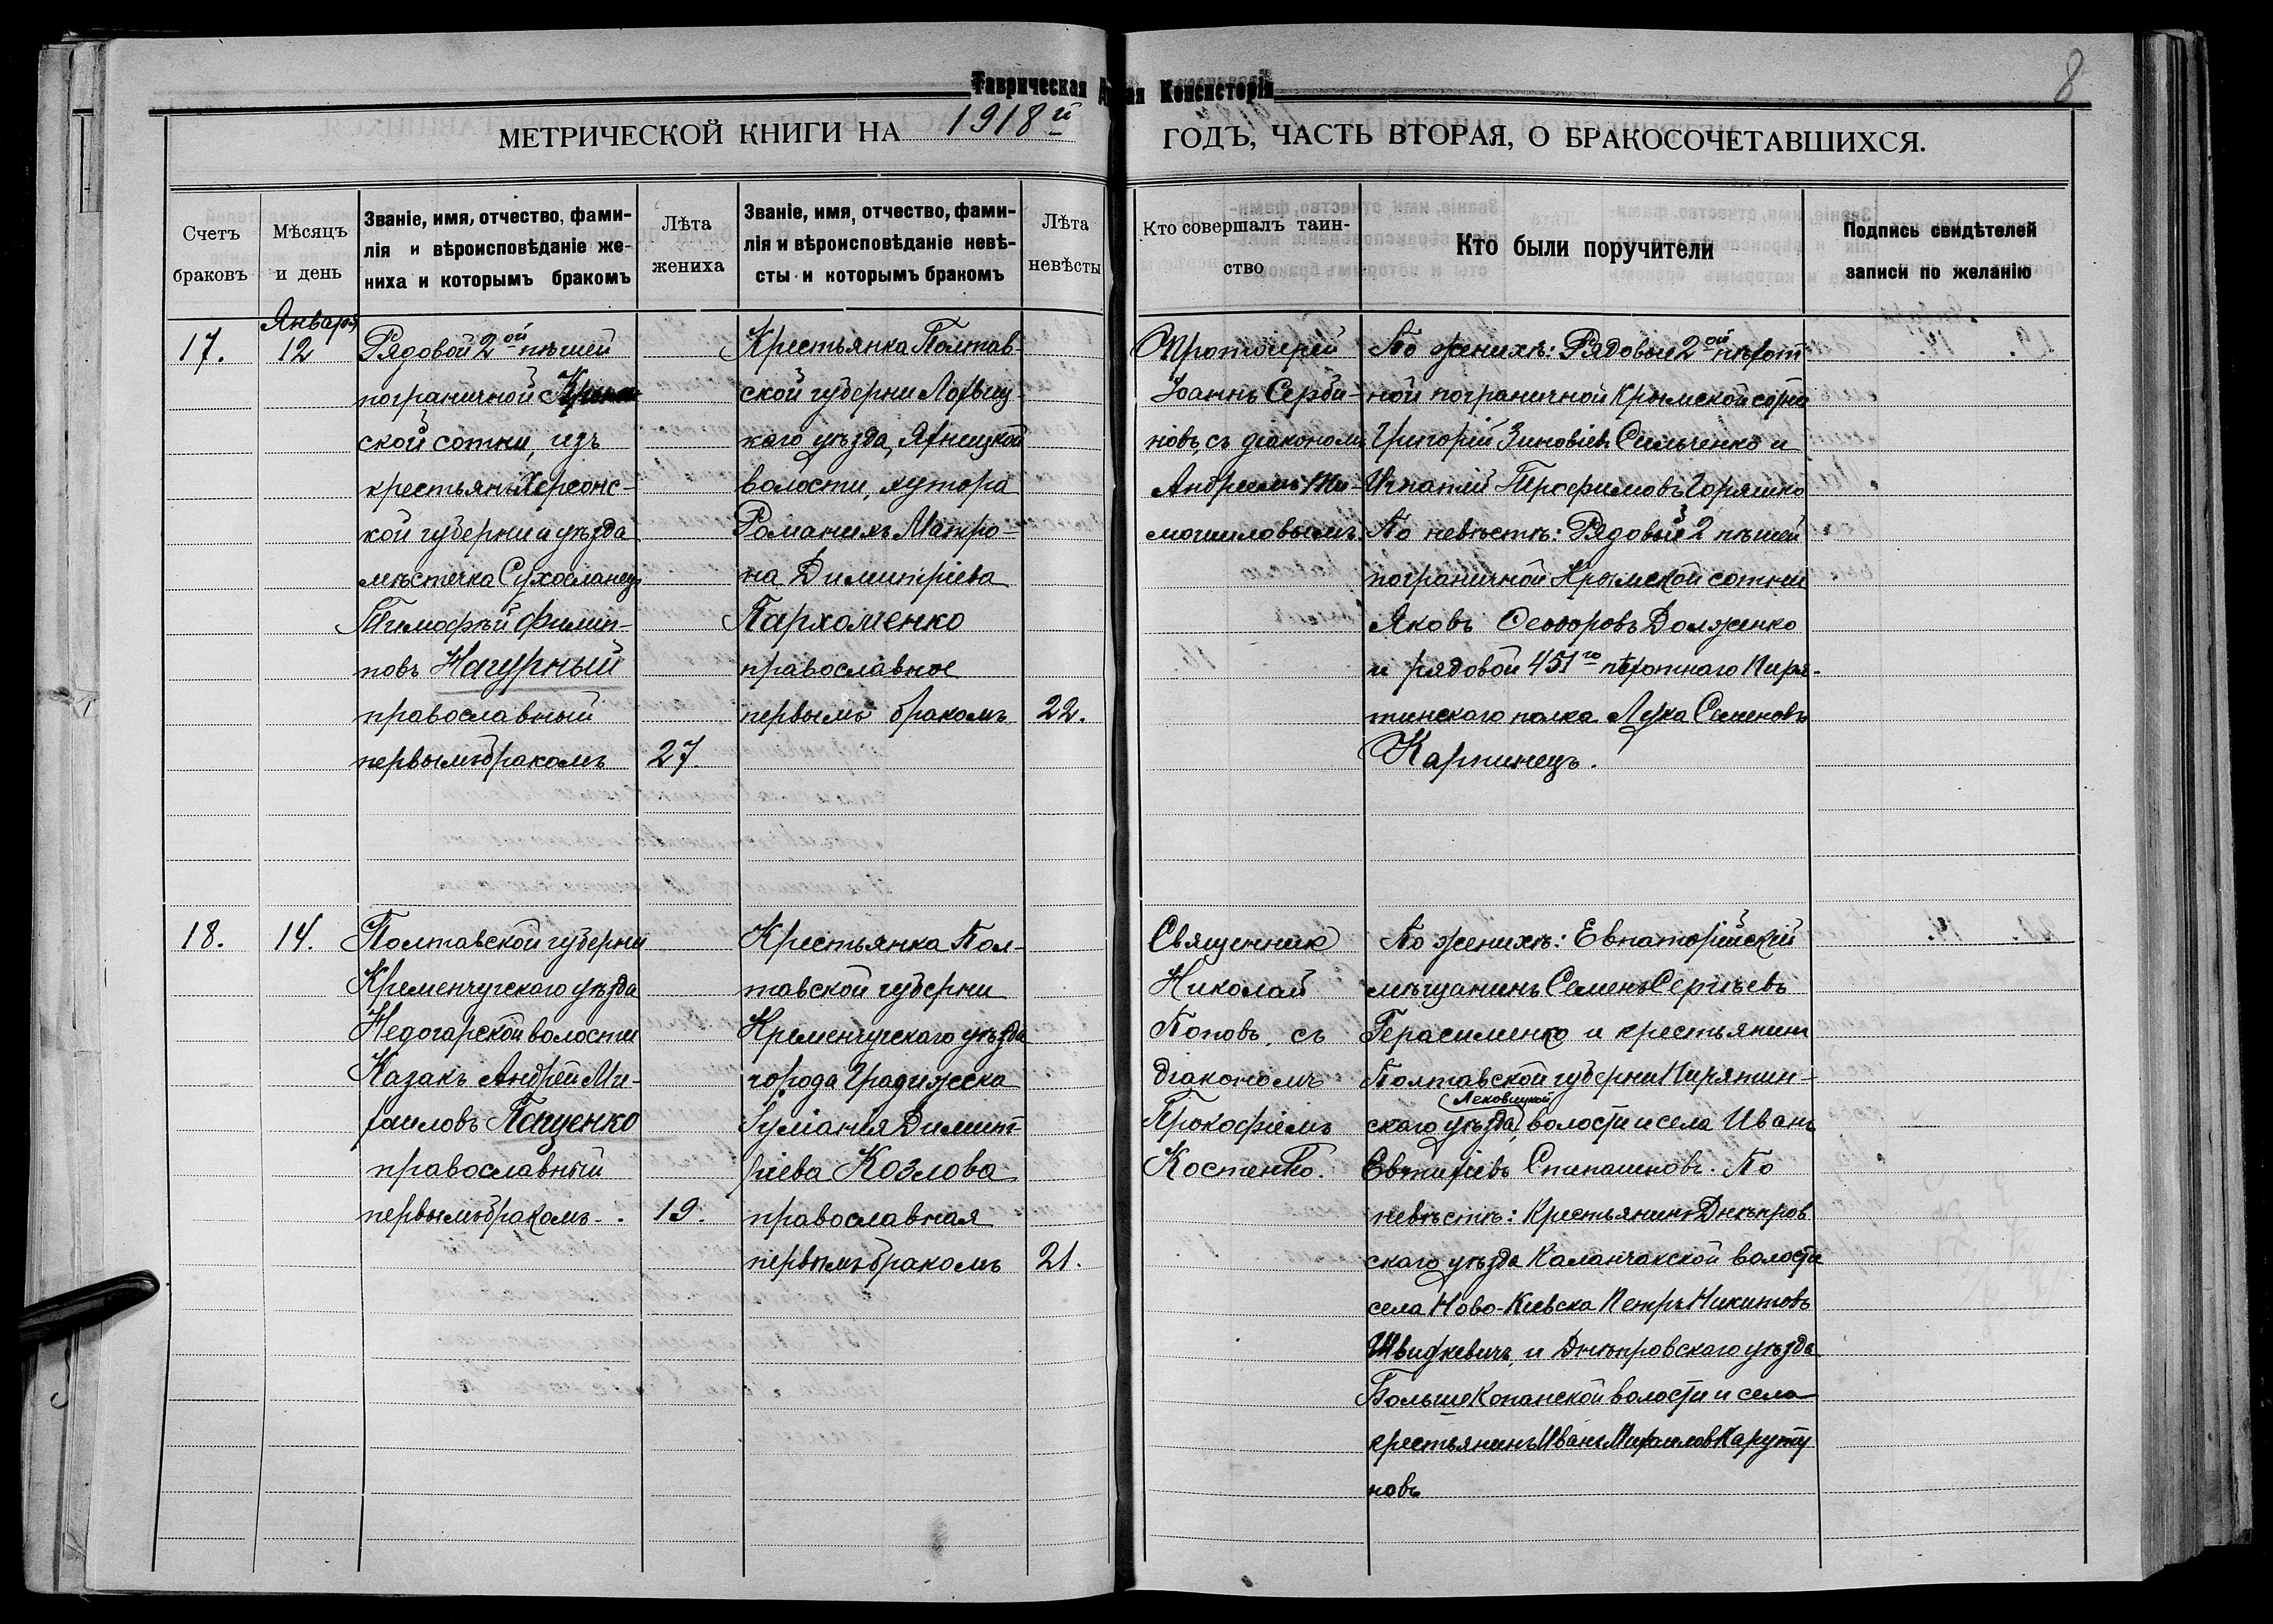 Таврическая
Консисторія
8
МЕТРИЧЕСКОЙ КНИГИ НА 1918й
ГОДЪ, ЧАСТЬ ВТОРАЯ, О БРАКОСОЧЕТАВШИХСЯ.
Счетъ
браковъ
Мѣсяцъ
и день
Званіе, имя, отчество, фами-
лія и вѣроисповѣданіе же-
ниха и которымъ бракомъ
Лѣта
жениха
Званіе, имя, отчество, фами-
лія и вѣроисповѣданіе невѣ-
сты и которымъ бракомъ
Лѣта
невѣсты
Кто совершалъ таин-
ство
Кто были поручители
Подпись свидѣтелей
записи по желанію
17.
Января
12
Рядовой 2ой пѣшей
пограничной Крым-
ской сотни, изъ
крестьянъ Херсонс-
кой губерни и уѣзда
мѣстечка
Тимофѣй Филип-
повъ Нагурный
православный
первымъ бракомъ
27.
Крестьянка Полтав
ской губерни Лохвиц-
каго уѣзда,
волости, хутора
Романихъ Матро-
на Димитріева
Пархоменко
православное
первымъ бракомъ
22.
Протоіерей
Іоаннъ Серби-
новъ, съ діакономъ
Андреемъ
По женихѣ: Рядовые 2ой пѣхот
ной пограничной Крымской сотни
Григорій Зиновіевъ Сильченко и
Игнатій Трофимовъ Горяшко
По невѣстѣ: Рядовый 2 пѣшей
пограничной Крымской сотни
Яковъ Ѳеодоровъ Долженко
и рядовой 451го пѣхотнаго Пиря-
тинскаго полка Лука Семеновъ
Карпинецъ.
18.
14.
Полтавской губерни
Кременчугскаго уѣзда
Недогарской волости
Казакъ Андрей Ми-
хаиловъ Пащенко
православный
первымъ бракомъ.
19.
Крестьянка Пол-
тавской губерни
Кременчугскаго уѣзда
города Градижска
Іуліанія Димит-
ріева Козлова
православная
первымъ бракомъ
21.
Священникъ
Николай
Поповъ, съ
діакономъ
Прокофіемъ
Костенко.
По женихѣ: Евпаторійскій
мѣщанинъ Семенъ Сергѣевъ
Герасименко и крестьянинъ
Полтавской губерни Пирятин-
скаго уѣзда, волости и села Иванъ
Евтихіевъ Степашковъ. По
невѣстѣ: Крестьянинъ Днѣпров
скаго уѣзда Каланчакской волости
села Ново-Кіевска Петръ Никитовъ
Швидкевичъ, и Днѣпровскаго уѣзда
БольшеКопанской волости и села
крестьянинъ Иванъ Михаиловъ Каруту
новъ